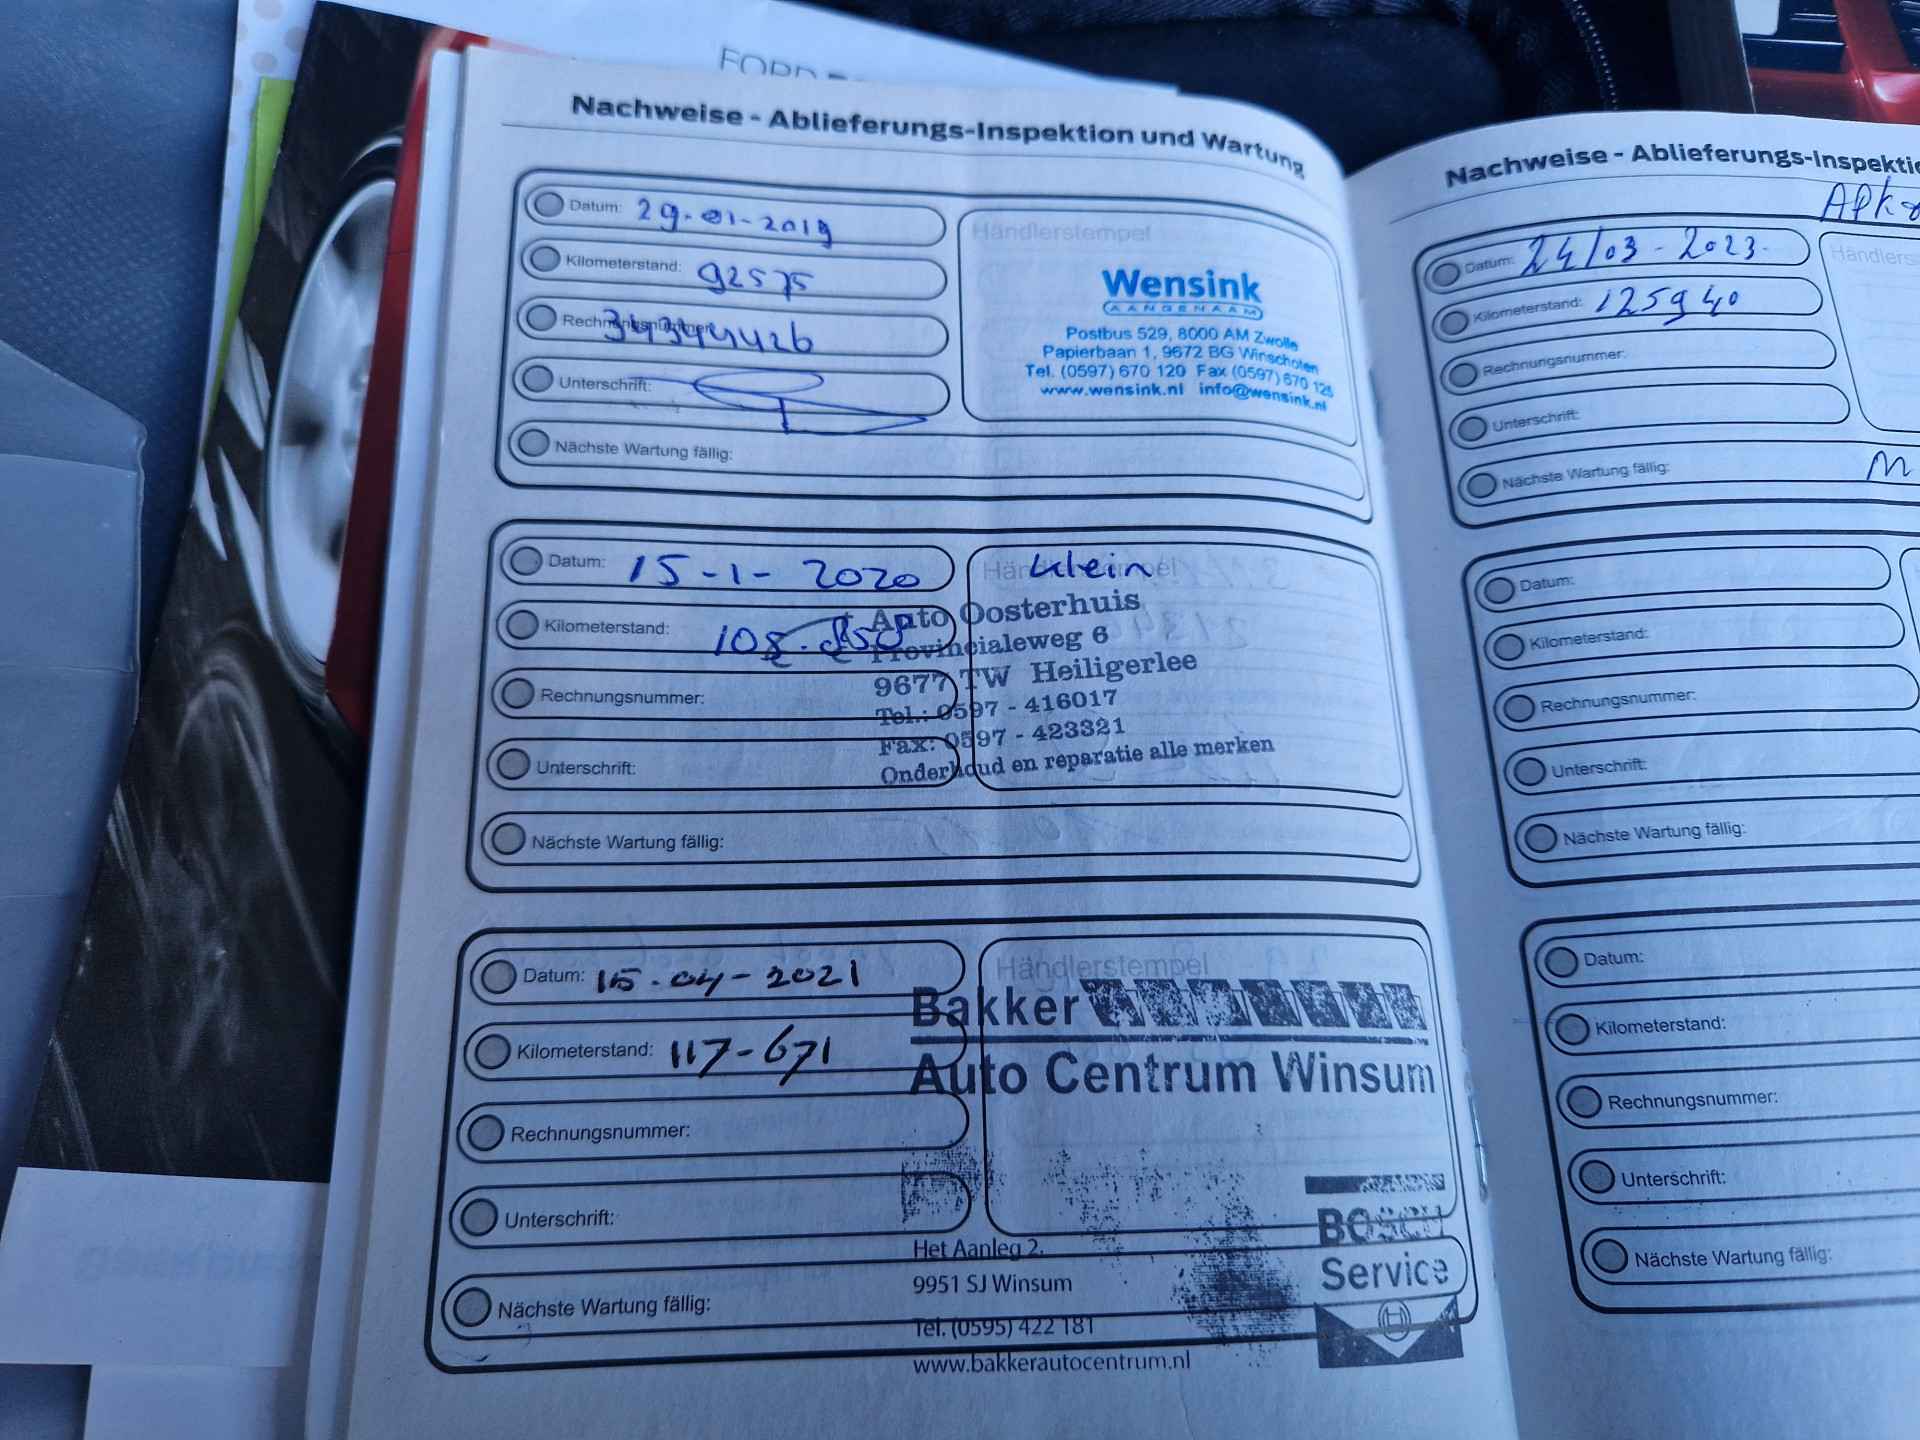 FORD
Nachweise - Ablieferungs-Inspektion und Wartung
Datum: 29-01-2019
Kilometerstand: 92575
Rechnungsnummer:
Unterschrift:
Nächste Wartung fällig:
Händlerstempel
Wensink
AANGENAAM
Postbus 529, 8000 AM Zwolle
Papierbaan 1, 9672 BG Winschoten
Tel. (0597) 670 120 Fax (0597) 670 125
www.wensink.nl info@wensink.nl
Datum: 15-1-2020
Kilometerstand: 108.850
Rechnungsnummer:
Unterschrift:
Nächste Wartung fällig:
Händlerstempel
klein
Auto Oosterhuis
Provincialeweg 6
9677 TW Heiligerlee
Tel.: 0597 - 416017
Fax: 0597 - 423321
Onderhoud en reparatie alle merken
Datum: 15-04-2021
Kilometerstand: 117-671
Rechnungsnummer:
Unterschrift:
Nächste Wartung fällig:
Händlerstempel
Bakker
Auto Centrum Winsum
Het Aanleg 2.
9951 SJ Winsum
Tel. (0595) 422 181
www.bakkerautocentrum.nl
BOSCH
Service
Nachweise - Ablieferungs-Inspektio
Datum: 24/03-2023-
Kilometerstand: 125940
Rechnungsnummer:
Unterschrift:
Nächste Wartung fällig:
Händlers
Datum:
Kilometerstand:
Rechnungsnummer:
Unterschrift:
Nächste Wartung fällig:
Datum:
Kilometerstand:
Rechnungsnummer:
Unterschrift:
Nächste Wartung fällig: